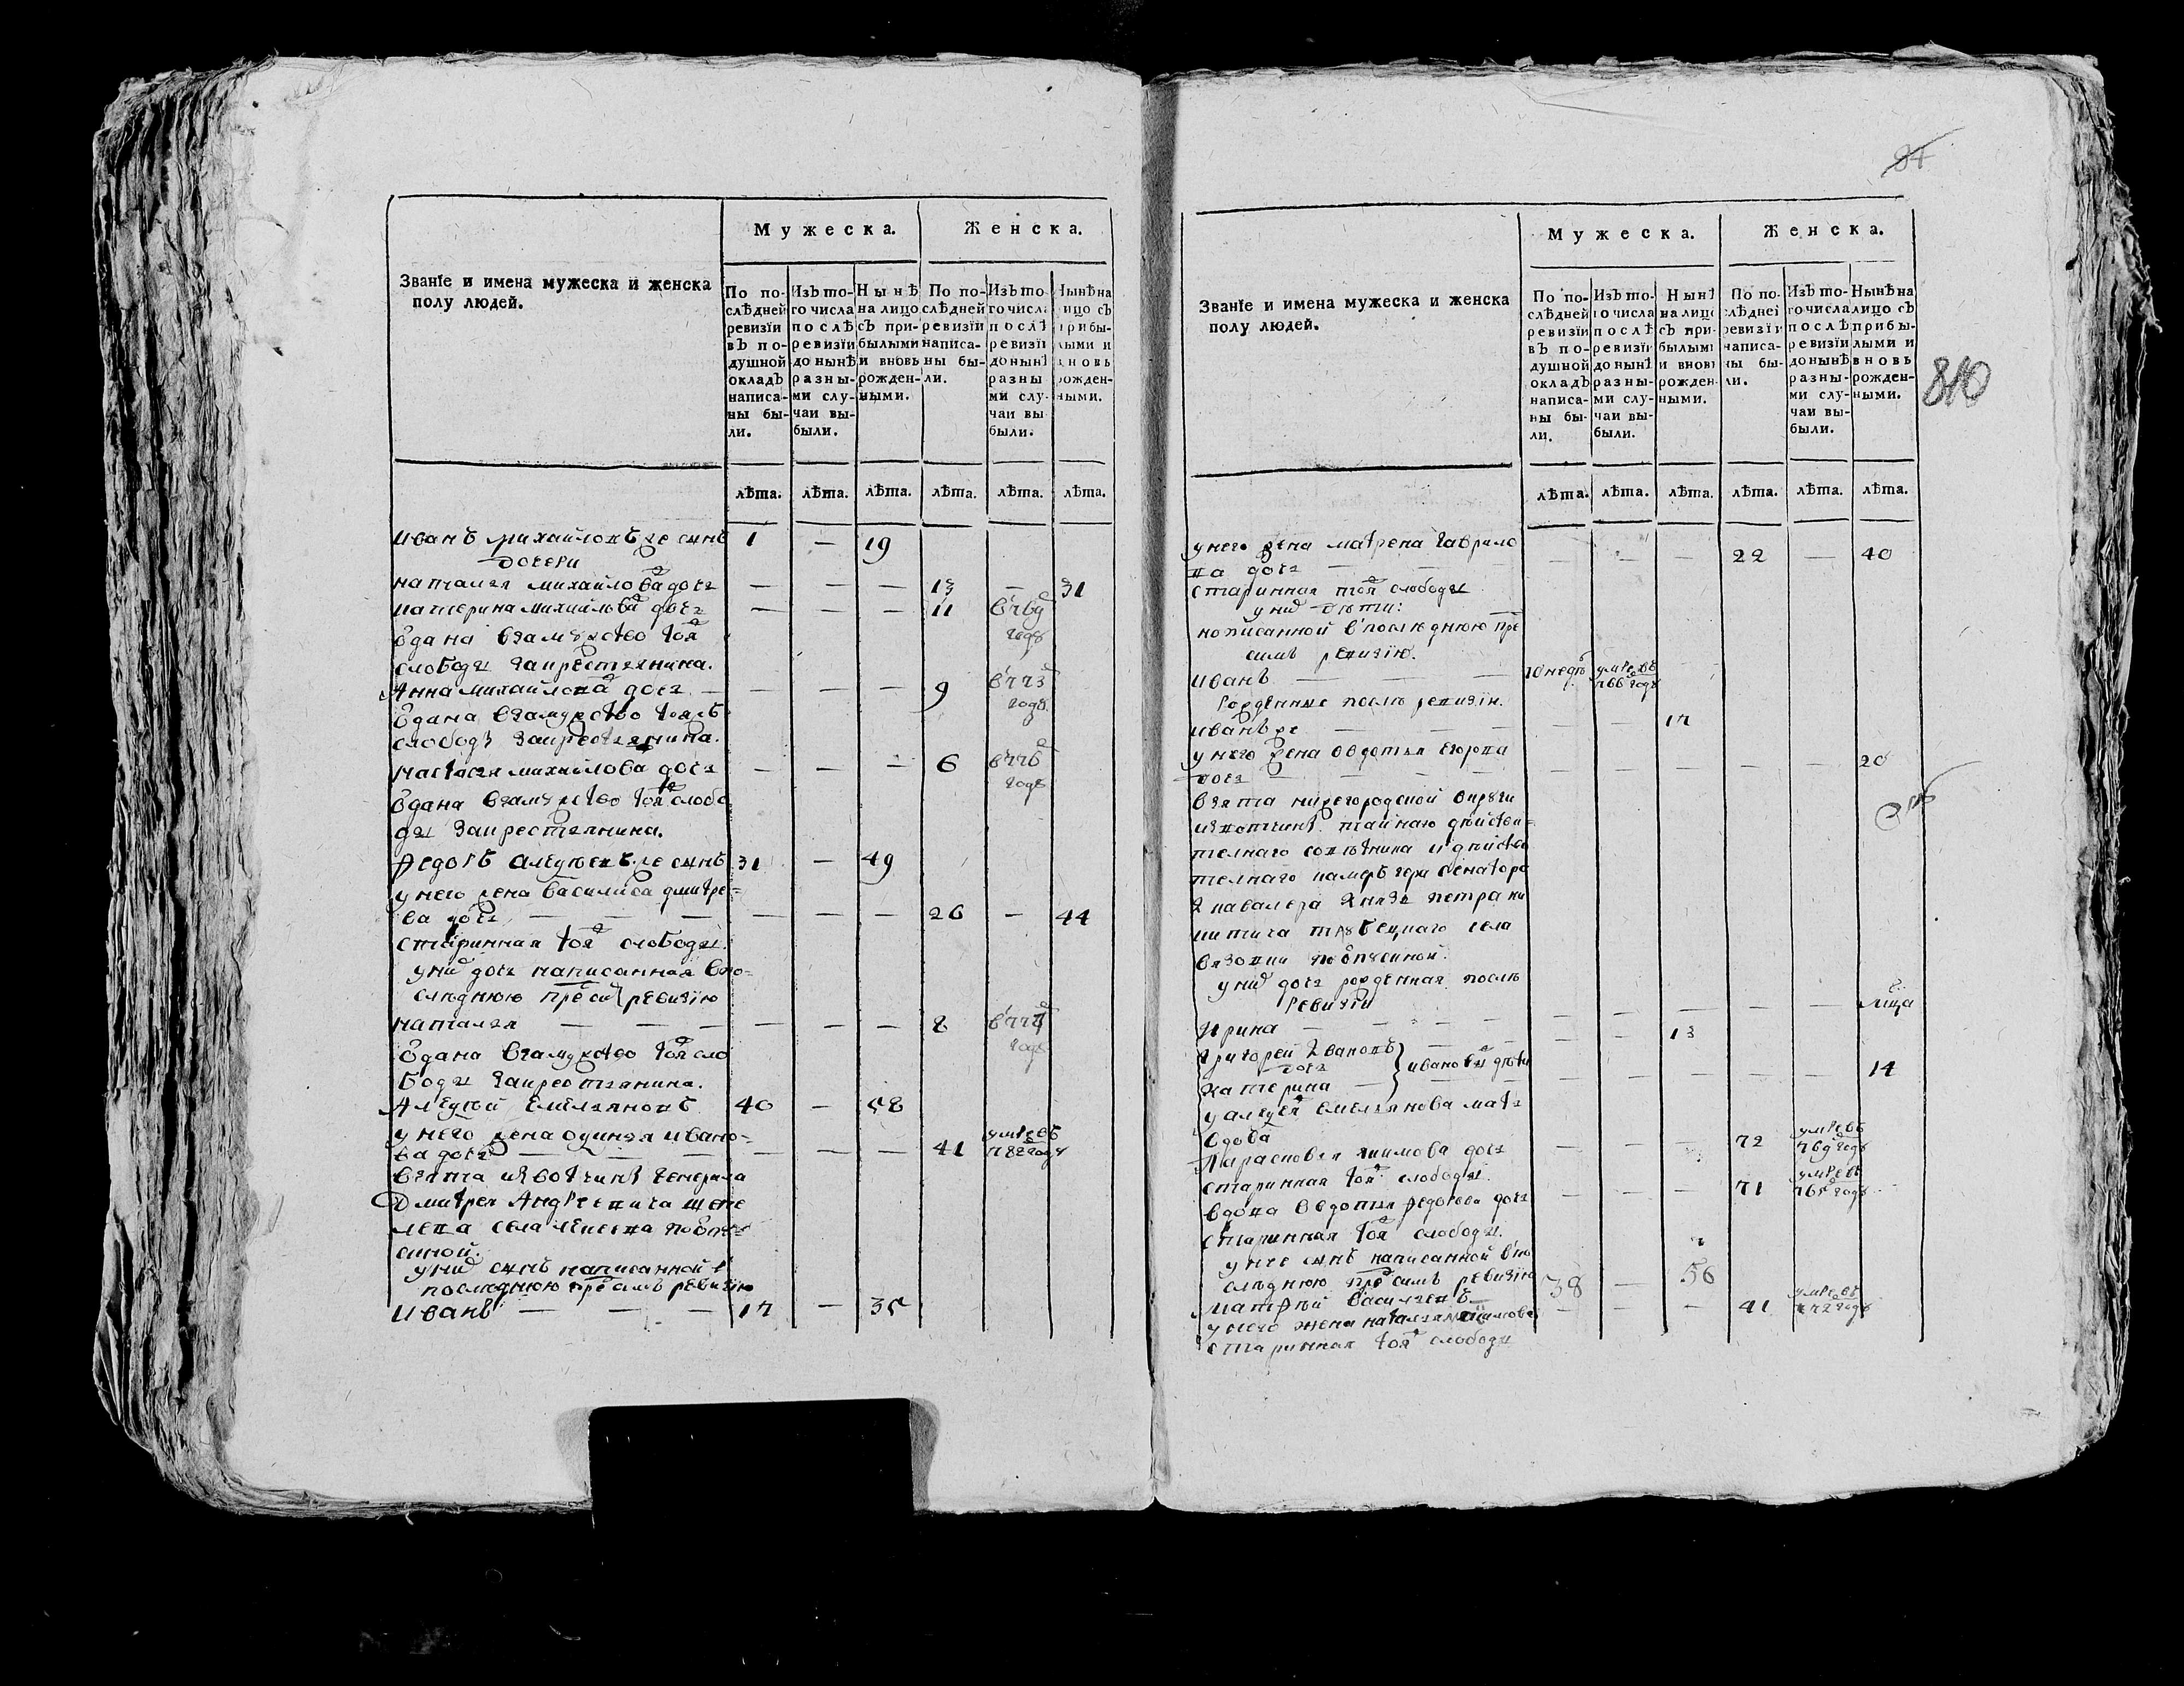 Мужеска.
Женска.
Званїе и имена мужеска и женска
полу людей.
По по-
слѣдней
ревизїи
въ по-
душной
окладъ
написа-
ны бы-
ли.
Изъ то-
го числа
послѣ
ревизїи
до нынѣ
разны-
ми слу-
чаи вы-
были.
Нынѣ
на лицо
съ при-
былыми
и вновь
рожден-
ными.
По по-
слѣдней
ревизїи
написа-
ны бы-
ли.
Изъ то
го числа
послѣ
ревизїи
до нынѣ
разны
ми слу-
чаи вы
были.
Нынѣ на
лицо съ
прибы-
лыми и
вновь
рожден-
ными.
лѣта. лѣта. лѣта. лѣта. лѣта. лѣта.
иванъ михаиловъ же сынъ 1 — 19
дочери
наталья михайлова дочь — — — 13 — 31
катерина михайлова дочь — — — 11
году
ѿдана взамужство тоя
слободы закрестьянина.
Анна михайлова дочь — — — — 9
году
ѿдана взамужство тоя жъ
слободы закрестьянина.
настасья михайлова дочь — — — 6
году
ѿдана взамужство тоя слобо
ды закрестьянина.
Ѳедоръ алеѯѣевъ же сынъ 31 — 49
у него жена василиса дмитре=
ва дочь — — — — — — 26 — 44
старинная тоя слободы.
у нихъ дочь написанная впо=
слѣднюю пред сим ревизїю
наталья — — — — — — 8
году
ѿдана взамужство тоя сло
боды закрестьянина.
Алеѯѣй емельяновъ 40 — 58
у него жена ѯинья ивано=
ва дочь — — — — — — 41 умре въ
782 году
взята извотчины генерала
Дмитрея Андреевича шепе
лева села
у нихъ сынъ написанной в
последнюю пред симъ ревизїю
Иванъ — — — 17 — 35
84
810
Мужеска.
Женска.
Званїе и имена мужеска и женска
полу людей.
По по-
слѣдней
ревизїи
въ по-
душной
окладъ
написа-
ны бы-
ли.
Изъ то-
го числа
послѣ
ревизїи
до нынѣ
разны-
ми слу-
чаи вы-
были.
Нынѣ
на лицо
съ при-
былыми
и вновь
рожден-
ными.
По по-
слѣдней
ревизїи
написа-
ны бы-
ли.
Изъ то-
го числа
послѣ
ревизїи
до нынѣ
разны-
ми слу-
чаи вы-
были.
Нынѣ на
лицо съ
прибы-
лыми и
вновь
рожден-
ными.
лѣта. лѣта. лѣта. лѣта. лѣта. лѣта.
у него жена матрена гаврило
ва дочь — — — — — 22 — 40
старинная тоя слободы
у них дѣти:
написанной в послѣднюю пре
симъ ревизїю.
иванъ — — — 10 недѣ умре въ
766 году
рожденные послѣ ревизїи.
иванъ же — — — — — 17
у него жена овдотья егорова
дочь — — — — — — — — 20
взята нижегородской округи
извотчины тайнаго дѣйстви=
телнаго советника и дѣйстви
телнаго камеръ гера сенатора
и кавалера князя петра ни
китича трубецкаго села
у них дочь рожденная послѣ
ревизїи
Ирина — — — — — — — —
григорей ивановъ — — 13
дочь
ивановы дѣти
катерина — — — — — — — 14
у алеѯѣя емельянова мать
вдова
Парасковья якимова дочь — — — 72 умре въ
769 году
старинная тоя слободы.
вдова овдотья ѳедорова дочь — — — 71 умре въ
году
старинная тоя слободы.
у нее сынъ написанной в по
слѣднюю пред симъ ревизїю
матвѣй васильевъ — 38 — 56
у него жена наталья — — — 41 умре въ
772 году
старинная тоя слободы